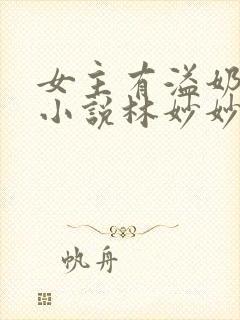 女主有溢奶
小說林妙妙
帆舟